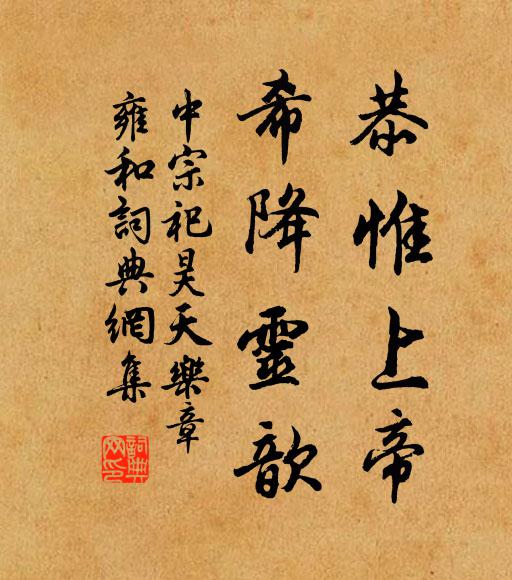 恭惟上帝
希降靈歆
中宗祀昊天樂章
雍和詞典網集
詞典网印